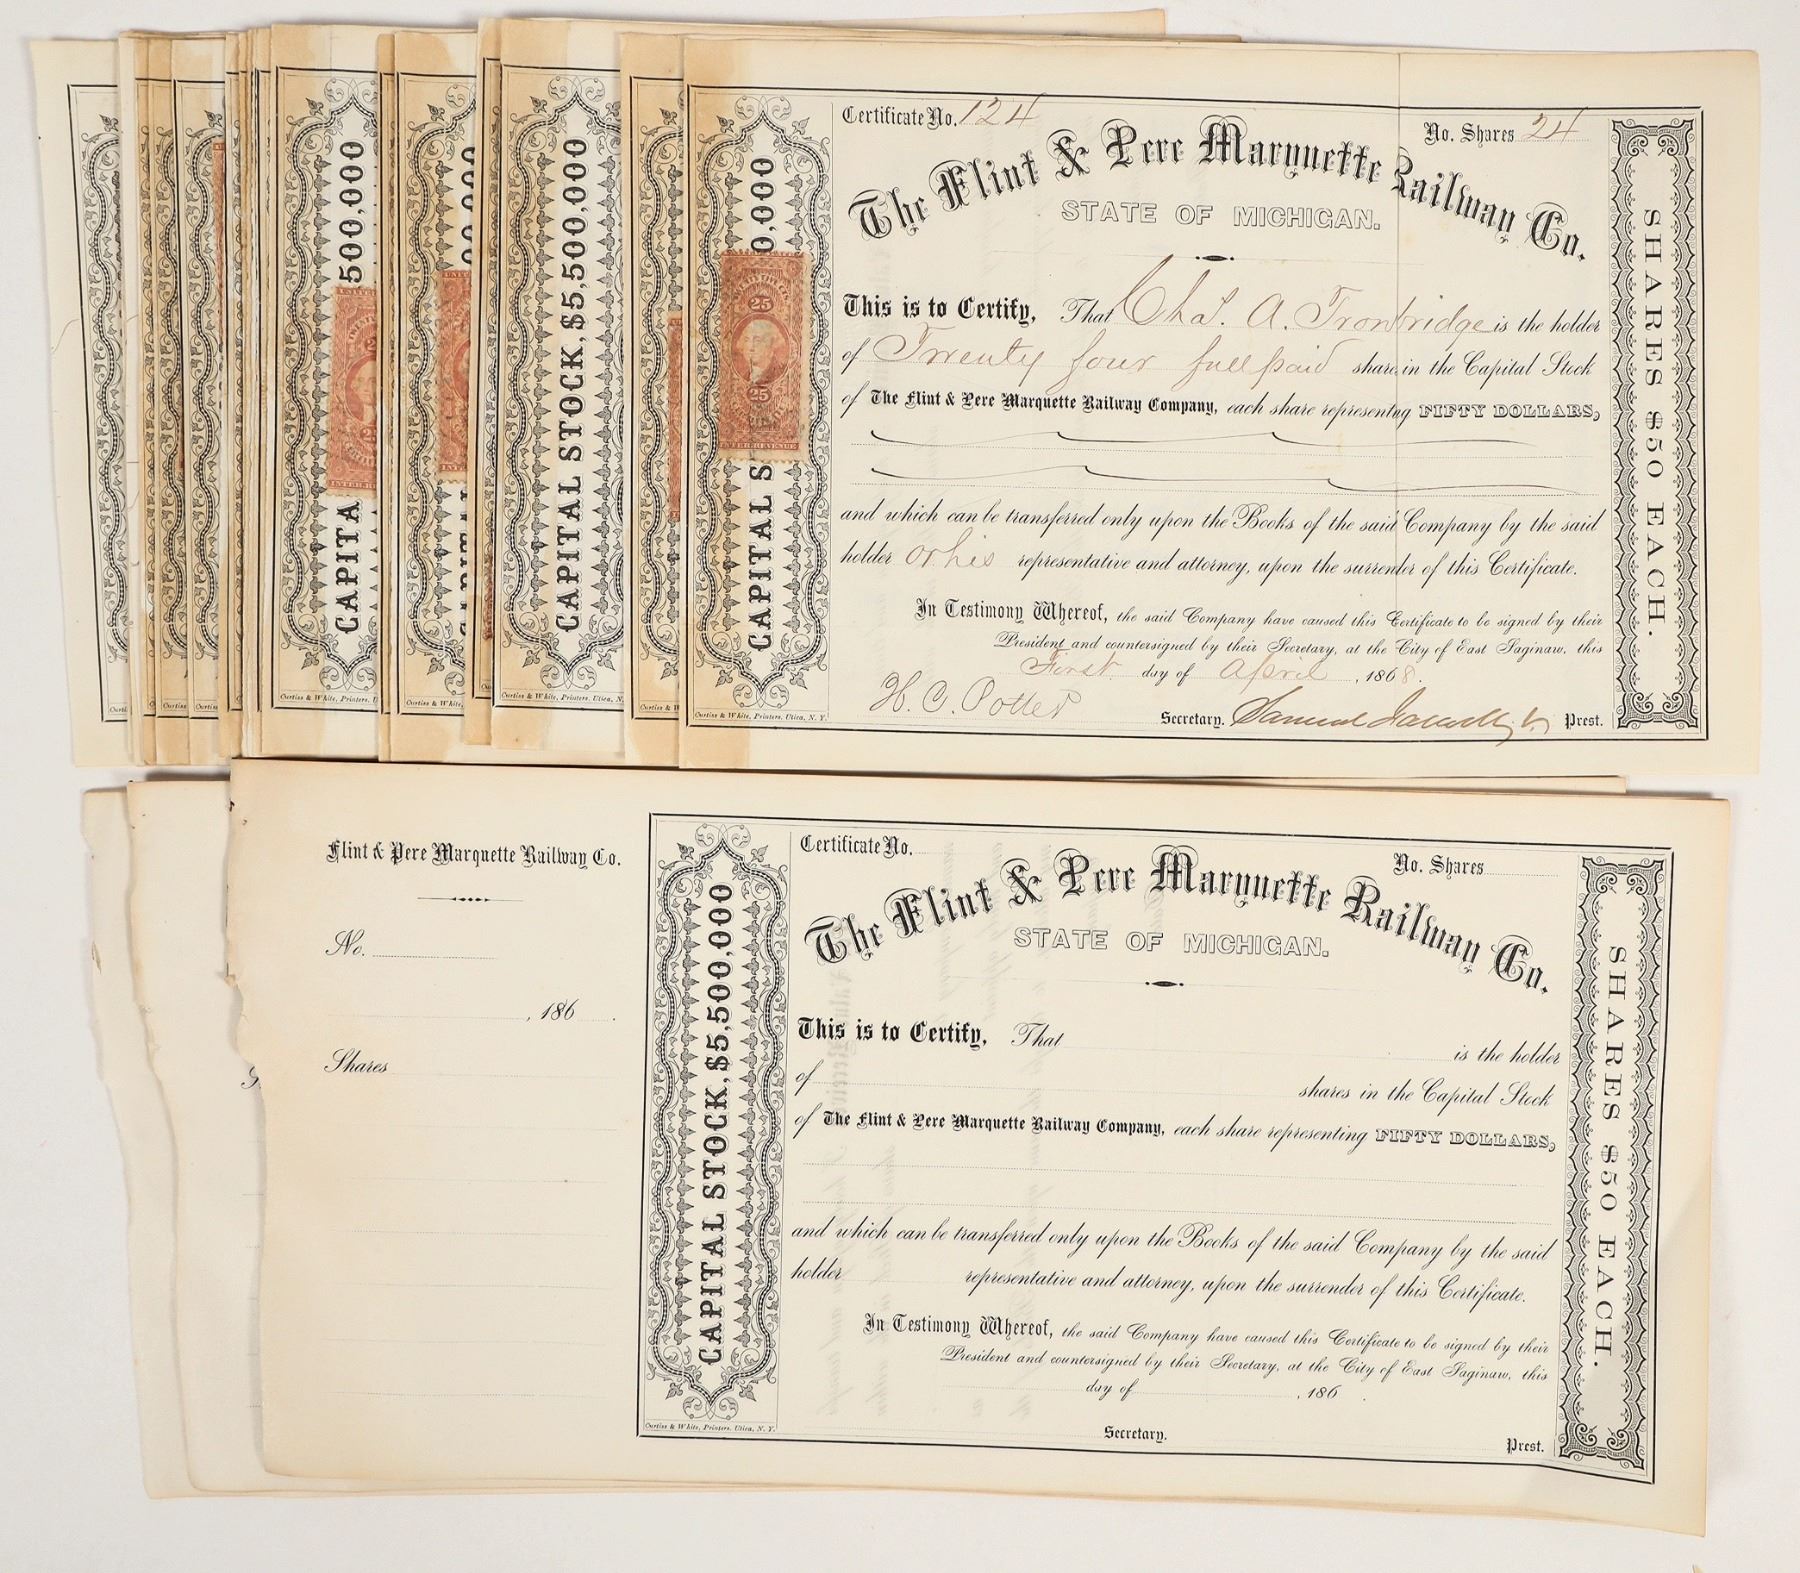 Certificate No. 124
No. Shares 24
The Flint & Pere Marquette Railway Co.
STATE OF MICHIGAN.
This is to Certify, That Chas. A. Trowbridge is the holder
of Twenty four full paid shares in the Capital Stock
of The Flint & Pere Marquette Railway Company, each share representing FIFTY DOLLARS,
and which can be transferred only upon the Books of the said Company by the said
holder or his representative and attorney, upon the surrender of this Certificate.
In Testimony Whereof, the said Company have caused this Certificate to be signed by their
President and countersigned by their Secretary, at the City of East Saginaw, this
First day of April, 1868.
H. C. Potter Secretary. Samuel Prest.
SHARES $50 EACH.
CAPITAL S 0,000
25
25
INTER. REVENUE
Curtiss & White, Printers, Utica, N. Y.
CAPITAL STOCK, $5,500,000
Curtiss & White, Printers, Utica, N.
CAPITA 500,000
Curtiss & White, Printers
Flint & Pere Marquette Railway Co.
No.
, 186 .
Shares
CAPITAL STOCK, $5,500,000
Curtiss & White, Printers, Utica, N. Y.
Certificate No.
No. Shares
The Flint & Pere Marquette Railway Co.
STATE OF MICHIGAN.
This is to Certify, That is the holder
of shares in the Capital Stock
of The Flint & Pere Marquette Railway Company, each share representing FIFTY DOLLARS,
and which can be transferred only upon the Books of the said Company by the said
holder representative and attorney, upon the surrender of this Certificate.
In Testimony Whereof, the said Company have caused this Certificate to be signed by their
President and countersigned by their Secretary, at the City of East Saginaw, this
day of , 186 .
Secretary. Prest.
SHARES $50 EACH.